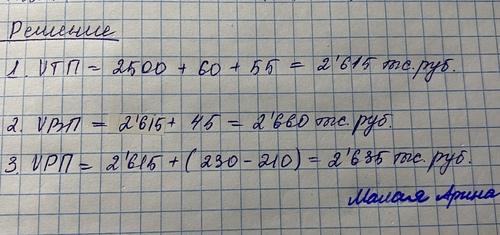 Решение
1. VТП = 2500 + 60 + 55 = 2'615 тыс. руб.
2. VВП = 2'615 + 45 = 2'660 тыс. руб.
3. VРП = 2'615 + (230 - 210) = 2'635 тыс. руб.
Малая Арина